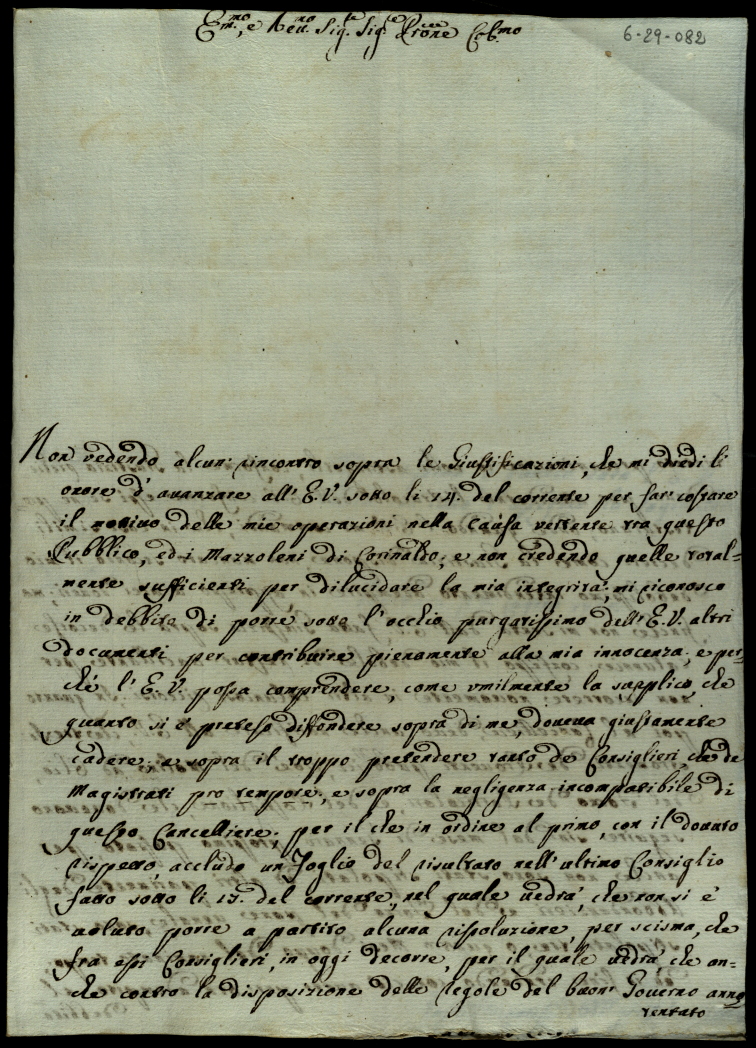 Em.mo, e Reu.mo Sig.re Sig.re Prone Col.mo
6-29-082
Non vedendo alcun' rincontro sopra le Giustificazioni, che mi diedi l'
onore d' auanzare all' E. V. sotto li 14. del corrente per far' costare
il motiuo delle mie operazioni nella causa vertente tra questo
Pubblico, ed i Mazzoleni di Corinaldo, e non credendo quelle total=
mente sufficienti per dilucidare la mia integrità, mi riconosco
in debbito di porre sotto l' occhio purgatissimo dell' E. V. altri
documenti per contribuire pienamente alla mia innocenza, e per=
ché l' E. V. possa comprendere, come vmilmente la supplico, che
quanto si è preteso diffondere sopra di me, doueua giustamente
cadere, e sopra il troppo pretendere tanto de Consiglieri, che de
Magistrati pro tempore, e sopra la negligenza incompatibile di
questo Cancelliere, per il che in ordine al primo, con il douuto
rispetto, accludo un Foglio del risultato nell' ultimo Consiglio
fatto sotto li 15. del corrente, nel quale uedrà, che non si è
uoluto porre a partito alcuna risoluzione, per scisma, che
fra essi Consiglieri, in oggi decorre, per il quale uedrà, che an=
che contro la disposizione delle regole del buon' Gouerno anno
tentato